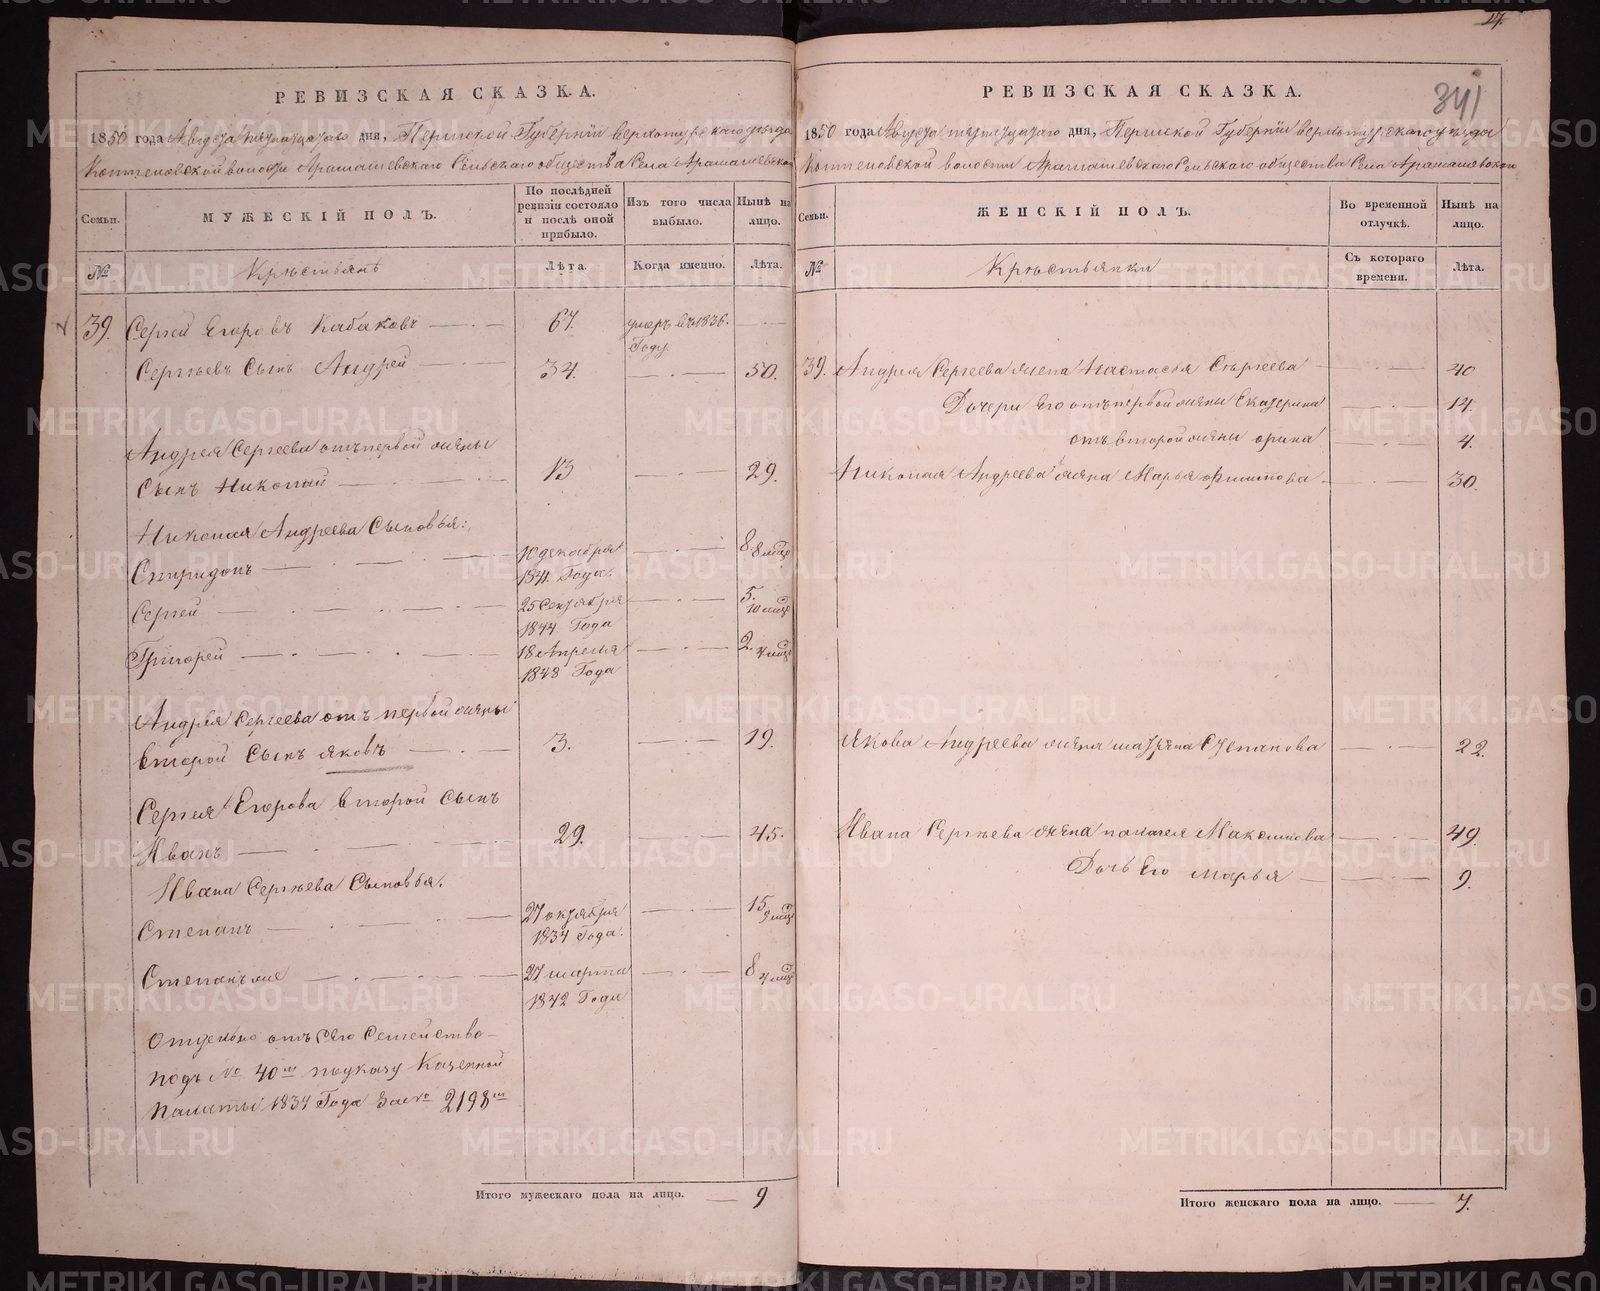 27.
341
РЕВИЗСКАЯ СКАЗКА.
1850 года Августа тридцатаго дня, Пермской Губернiи верхотурскаго уѣзда
Коптеловской волости Арамашевскаго Сельскаго общества Села Арамашевской
Семьи.
МУЖЕСКIЙ ПОЛЪ.
По послѣдней ревизiи состояло и послѣ оной прибыло.
Изъ того числа выбыло.
Нынѣ на лицо.
№
Крѣстьянъ
Лѣта.
Когда именно.
Лѣта.
39. Сергей Егоровъ Кабаковъ 67. умеръ въ 1836.
Году
Сергѣевъ Сынъ Андрей 34. 50.
Андрея Сергеева отъ первой жены
Сынъ Николай 13 29.
Николая Андреева Сыновья:
Спиридонъ 10 декабря 8. 8 мѣц
1841. Года.
Сергей 25 Сентября 5. 10 мѣц
1844 Года
Григорей 18 Апреля 2. 4 мѣц
1848 Года
Андрея Сергеева отъ первой жены
второй Сынъ яковъ 3. 19.
Сергея Егорова второй сынъ
Иванъ 29. 45.
Ивана Сергѣева Сыновья.
Степанъ 27 октября 15 9 мѣц
1834 Года.
Степанъ же 27 марта 8 4 мѣц
1842 Года
Отдельно отъ сего Семейство
подъ № 40м по указу Казенной
Палаты 1834 Года За № 2198м
Итого мужескаго пола на лицо. 9
РЕВИЗСКАЯ СКАЗКА.
1850 года Августа тридцатаго дня, Пермской Губернiи верхотурскаго уѣзда
Коптеловской волости Арамашевскаго Сельскаго общества Села Арамашевской
Семьи.
ЖЕНСКIЙ ПОЛЪ.
Во временной отлучкѣ.
Нынѣ на лицо.
№
Крѣстьянки
Съ котораго времени.
Лѣта.
39. Андрея Сергеева жена Настасья Сѣргеева 40
Дочери Его отъ первой жены Екатерина 14.
отъ второй жены орина 4.
Николая Андреева жена Марья Филипова 30.
якова Андреева жена матрена Степанова 22.
Ивана Сергѣева жена палагея Максимова 49.
Дочь Его марья 9.
Итого женскаго пола на лицо. 7.
METRIKI.GASO-URAL.RU